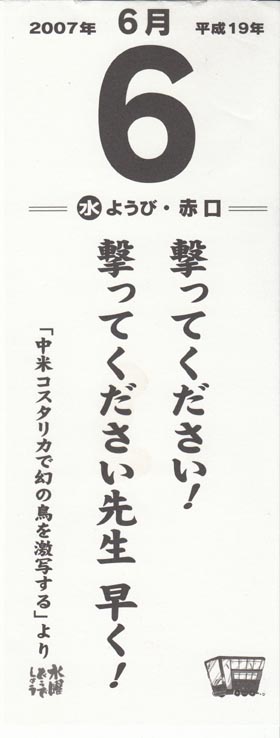 2007年 6月 平成19年
6
水ようび・赤口
撃ってください!
撃ってください先生 早く!
「中米コスタリカで幻の鳥を激写する」より
水曜どうでしょう